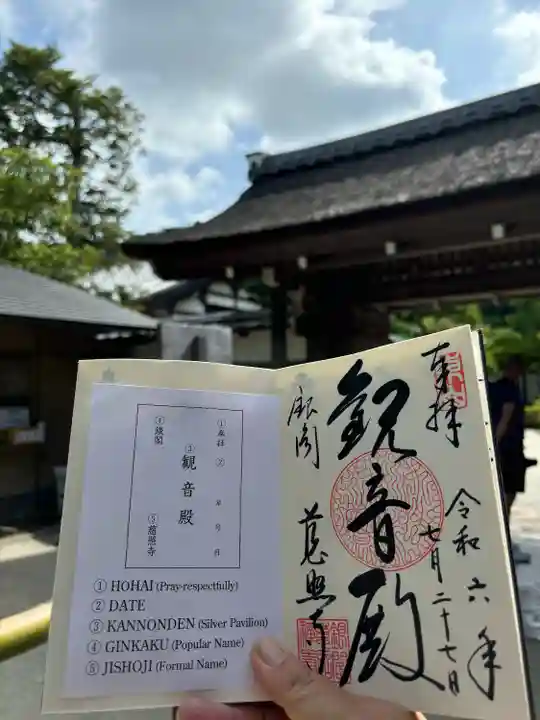 ①奉拝
② 年 月 日
③
観音殿
④銀閣
⑤慈照寺
① HOHAI (Pray-respectfully)
② DATE
③ KANNONDEN (Silver Pavilion)
④ GINKAKU (Popular Name)
⑤ JISHOJI (Formal Name)
奉拝
令和六年
七月二十七日
観音殿
銀閣
慈照寺